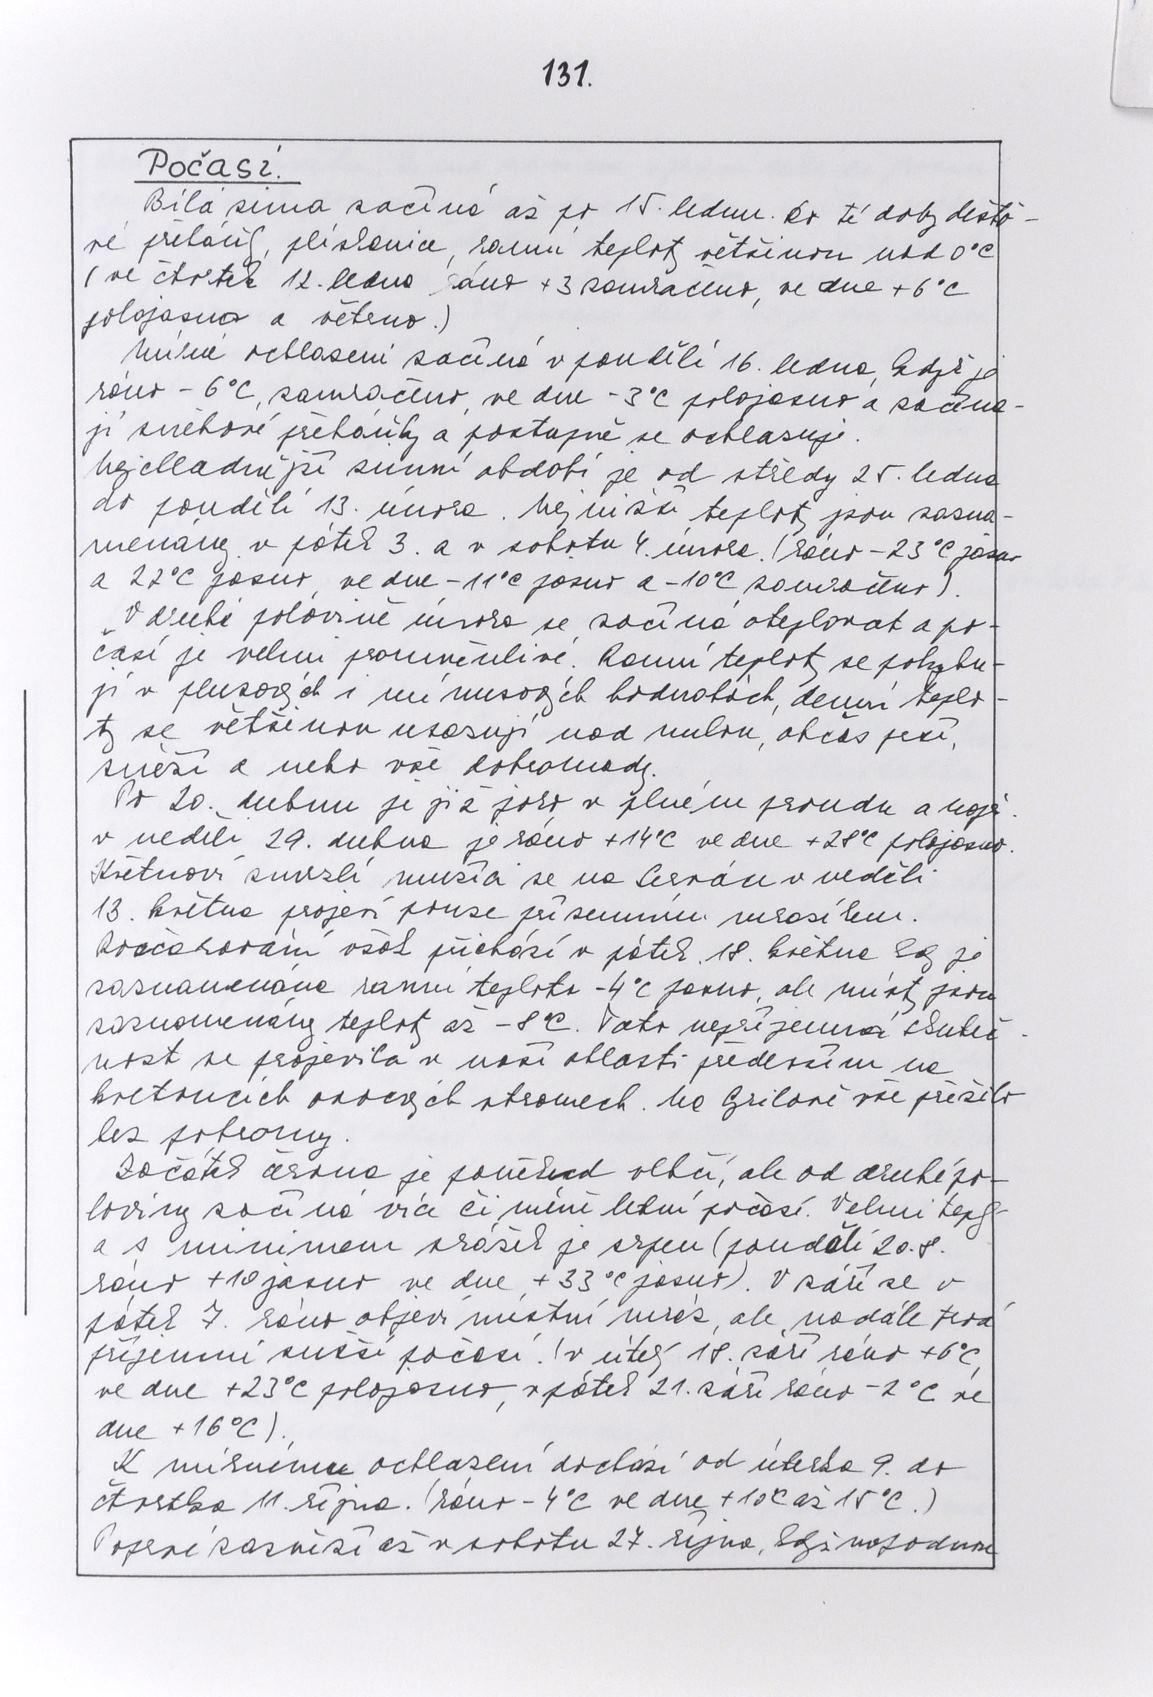 131.
Počasí.
Bílá zima začíná až po 15. lednu. Do té doby dešťo-
vé přeháňky, plískanice, ranní teploty většinou nad 0°C
(ve čtvrtek 12. ledna ráno +3 zamračeno, ve dne +6°C
polojasno a větrno.)
Mírné ochlazení začíná v pondělí 16. ledna, když je
ráno -6°C, zamračeno, ve dne -3°C polojasno a začína-
jí sněhové přeháňky a postupně se ochlazuje.
Nejchladnější zimní období je od středy 25. ledna
do pondělí 13. února. Nejnižší teploty jsou zazna-
menány v pátek 3. a v sobotu 4. února. (ráno -23°C jasno
a 22°C jasno, ve dne -11°C jasno a -10°C zamračeno).
V druhé polovině února se začíná oteplovat a po-
časí je velmi proměnlivé. Ranní teploty se pohybu-
jí v plusových i mínusových hodnotách, denní teplo-
ty se většinou usazují nad nulou, občas prší,
sněží a nebo vše dohromady.
Po 20. dubnu je již jaro v plném proudu a např.
v neděli 29. dubna je ráno +14°C ve dne +28°C polojasno.
Květnoví zmrzlí muži se na Servác v neděli
13. května projeví pouze přízemním mrazíkem.
Rozčarování však přichází v pátek 18. května kdy je
zaznamenána ranní teplota -4°C jasno, ale místy jsou
zaznamenány teploty až -8°C. Tato nepříjemná skuteč-
nost se projevila v naší oblasti především na
kvetoucích ovocných stromech. Na Grilově vše přežilo
bez pohromy.
Začátek června je poněkud vlhčí, ale od druhé po-
loviny začíná více či méně letní počasí. Velmi teplý
a s minimem srážek je srpen (pondělí 20.8.
ráno +18 jasno ve dne +33°C jasno). V září se v
pátek 7. ráno objeví místní mráz, ale nadále trvá
příjemní sušší počasí. (v úterý 18. září ráno +6°C,
ve dne +23°C polojasno, v pátek 21. září ráno -2°C ve
dne +16°C).
K mírnému ochlazení dochází od úterka 9. do
čtvrtka 11. října. (ráno -4°C ve dne +10°C až 15°C.)
Poprvé zasněží až v sobotu 27. října, když napadne